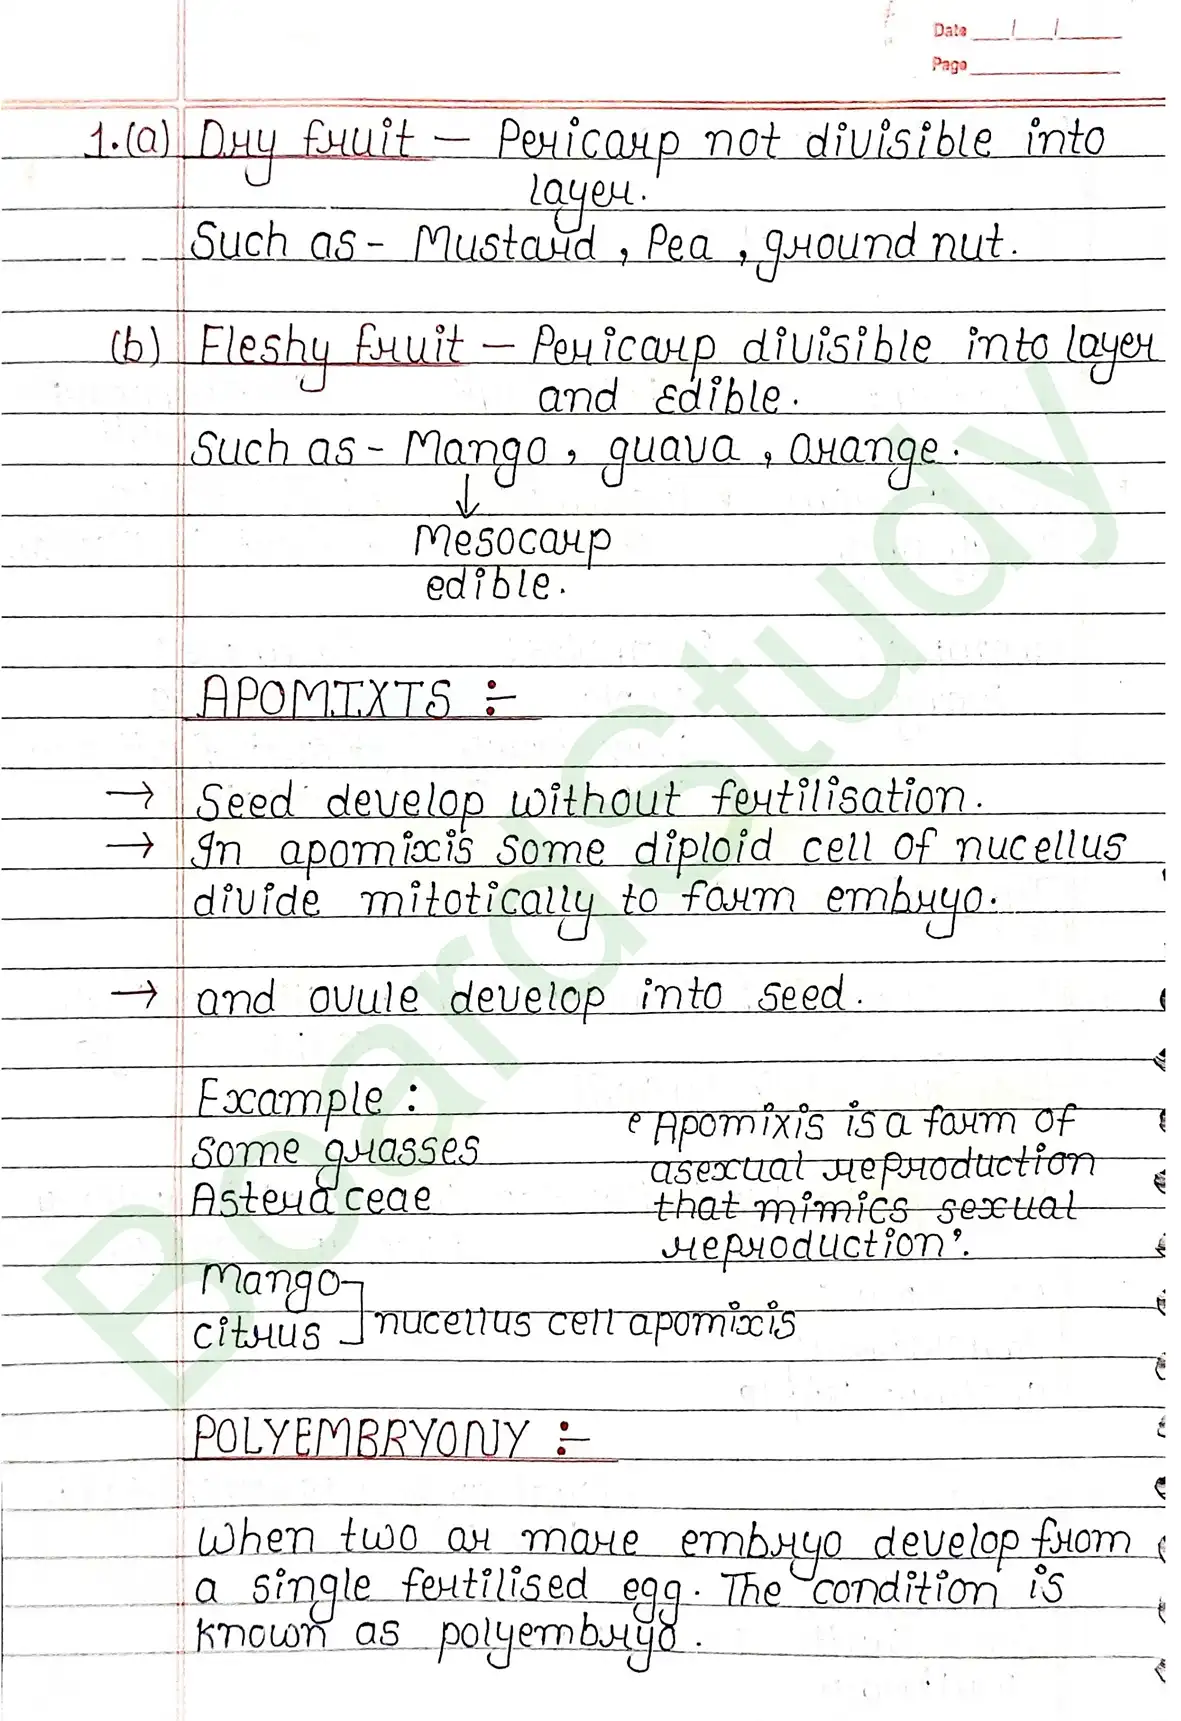 Date __/__/____
Page ________
1.(a) Dry fruit — Pericarp not divisible into
layer.
Such as - Mustard, Pea, ground nut.
(b) Fleshy fruit — Pericarp divisible into layer
and Edible.
Such as - Mango, guava, orange.
↓
Mesocarp
edible.
APOMIXIS :-
→ Seed develop without fertilisation.
→ In apomixis some diploid cell of nucellus
divide mitotically to form embryo.
→ and ovule develop into seed.
Example :
Some grasses
Asteraceae
e Apomixis is a form of
asexual reproduction
that mimics sexual
reproduction’.
Mango
citrus
nucellus cell apomixis
POLYEMBRYONY :-
When two or more embryo develop from
a single fertilised egg. The condition is
known as polyembryo.
BoardStudy